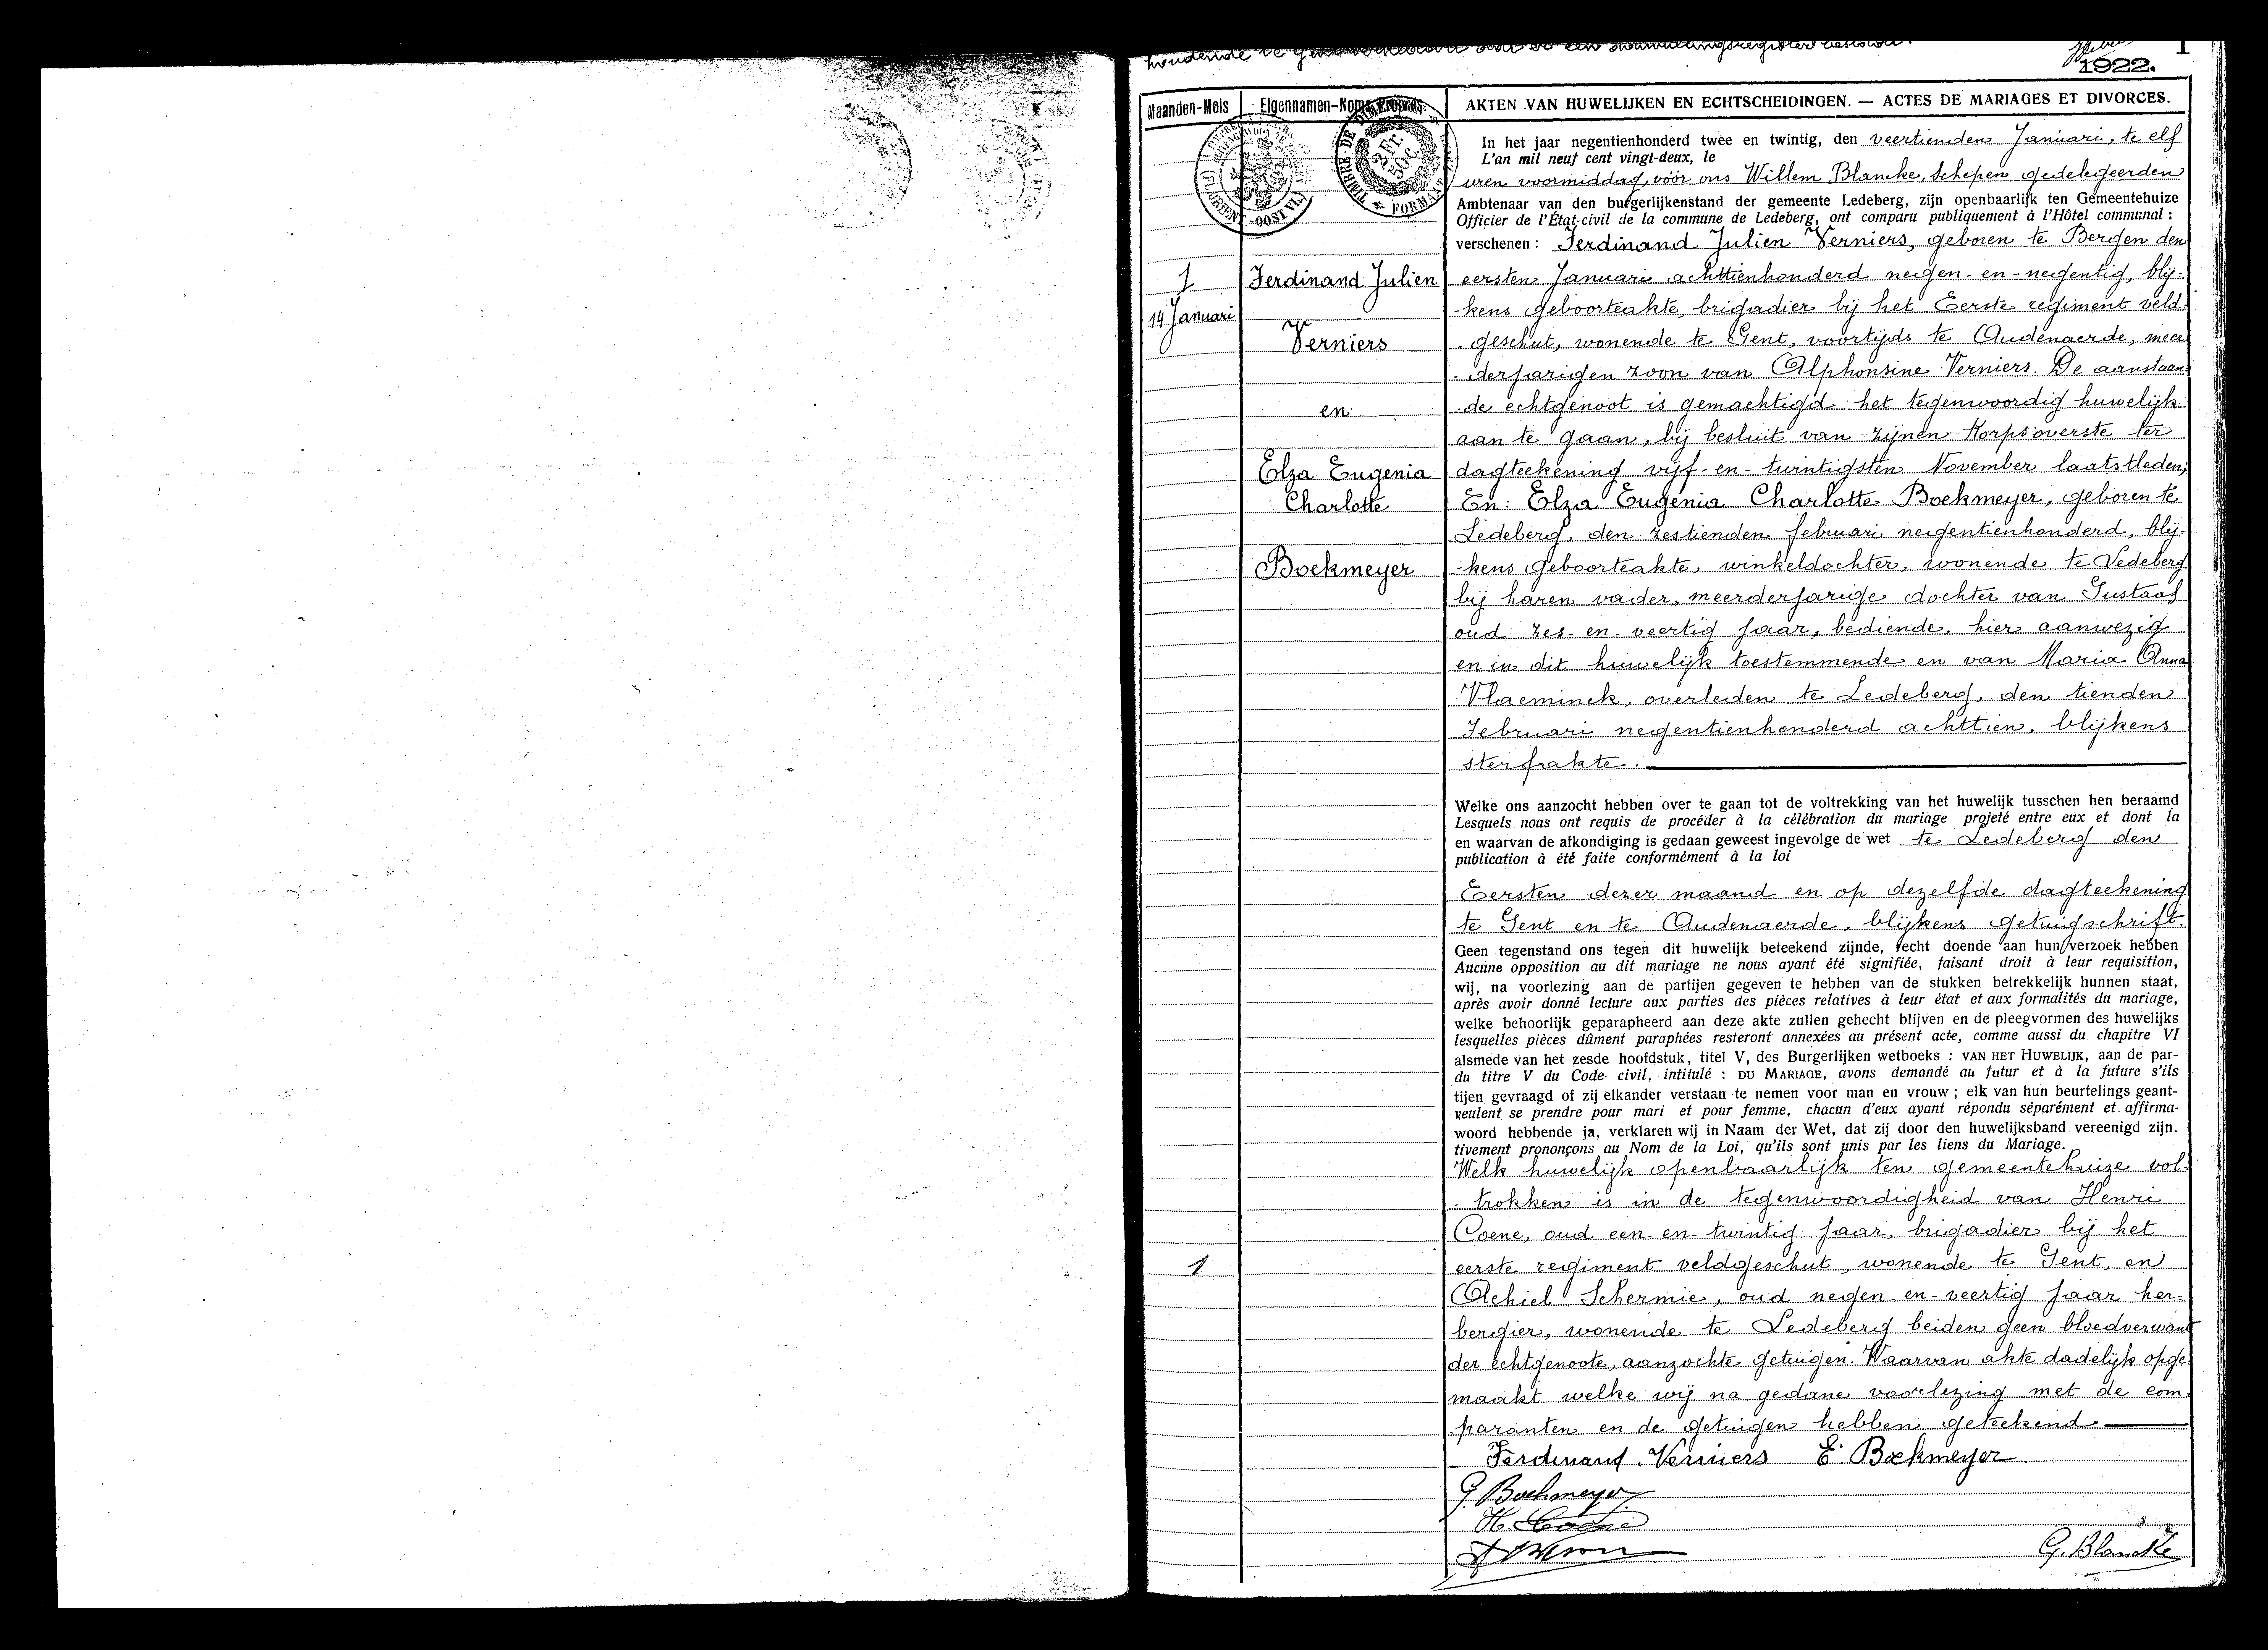 houdende te
1
1922.
Maanden-Mois
Eigennamen-Noms Propres.
AKTEN VAN HUWELIJKEN EN ECHTSCHEIDINGEN. — ACTES DE MARIAGES ET DIVORCES.
TIMBRE DE DIMENSION
2 Fr. 50 C.
FORMAAT
(FL. ORIENT.-OOST VL.)
1
14 Januari
Ferdinand Julien
Verniers
en
Elza Eugenia
Charlotte
Boekmeyer
1
In het jaar negentienhonderd twee en twintig, den veertienden Januari, te elf
L'an mil neuf cent vingt-deux, le
uren voormiddag, vóór ons Willem Blancke, Schepen gedelegeerden
Ambtenaar van den burgerlijkenstand der gemeente Ledeberg, zijn openbaarlijk ten Gemeentehuize
Officier de l'État-civil de la commune de Ledeberg, ont comparu publiquement à l'Hôtel communal :
verschenen : Ferdinand Julien Verniers, geboren te Bergen den
eersten Januari achttienhonderd negen-en-negentig, blij-
kens geboorteakte, brigadier bij het Eerste regiment veld-
geschut, wonende te Gent, voortijds te Audenaerde, meer
-derjarigen zoon van Alphonsine Verniers. De aanstaan-
-de echtgenoot is gemachtigd het tegenwoordig huwelijk
aan te gaan, bij besluit van zijnen Korpsoverste ter
dagteekening vijf-en-twintigsten November laatstleden;
En: Elza Eugenia Charlotte Boekmeyer, geboren te
Ledeberg, den zestienden februari negentienhonderd, blij-
-kens geboorteakte, winkeldochter, wonende te Ledeberg
bij haren vader, meerderjarige dochter van Gustaaf
oud zes-en-veertig jaar, bediende, hier aanwezig
en in dit huwelijk toestemmende en van Maria Anna
Vlaeminck, overleden te Ledeberg, den tienden
Februari negentienhonderd achttien, blijkens
sterfakte.
Welke ons aanzocht hebben over te gaan tot de voltrekking van het huwelijk tusschen hen beraamd
Lesquels nous ont requis de procéder à la célébration du mariage projeté entre eux et dont la
en waarvan de afkondiging is gedaan geweest ingevolge de wet te Ledeberg den
publication à été faite conformément à la loi
Eersten dezer maand en op dezelfde dagteekening
te Gent en te Audenaerde, blijkens getuigschrift.
Geen tegenstand ons tegen dit huwelijk beteekend zijnde, recht doende aan hun verzoek hebben
Aucune opposition au dit mariage ne nous ayant été signifiée, faisant droit à leur requisition,
wij, na voorlezing aan de partijen gegeven te hebben van de stukken betrekkelijk hunnen staat,
après avoir donné lecture aux parties des pièces relatives à leur état et aux formalités du mariage,
welke behoorlijk geparapheerd aan deze akte zullen gehecht blijven en de pleegvormen des huwelijks
lesquelles pièces dûment paraphées resteront annexées au présent acte, comme aussi du chapitre VI
alsmede van het zesde hoofdstuk, titel V, des Burgerlijken wetboeks : VAN HET HUWELIJK, aan de par-
du titre V du Code civil, intitulé : DU MARIAGE, avons demandé au futur et à la future s'ils
tijen gevraagd of zij elkander verstaan te nemen voor man en vrouw ; elk van hun beurtelings geant-
veulent se prendre pour mari et pour femme, chacun d'eux ayant répondu séparément et affirma-
woord hebbende ja, verklaren wij in Naam der Wet, dat zij door den huwelijksband vereenigd zijn.
tivement prononçons au Nom de la Loi, qu'ils sont unis par les liens du Mariage.
Welk huwelijk openbaarlijk ten gemeentehuize vol-
-trokken is in de tegenwoordigheid van Henri
Coene, oud een-en-twintig jaar, brigadier bij het
eerste regiment veldgeschut, wonende te Gent, en
Achiel Schermie, oud negen-en-veertig jaar her-
bergier, wonende te Ledeberg beiden geen bloedverwant
der echtgenoote, aanzochte getuigen. Waarvan akte dadelijk opge-
maakt welke wij na gedane voorlezing met de com-
paranten en de getuigen hebben geteekend
Ferdinand Verniers E. Boekmeyer
G. Boekmeyer
H. Coene
G. Blancke